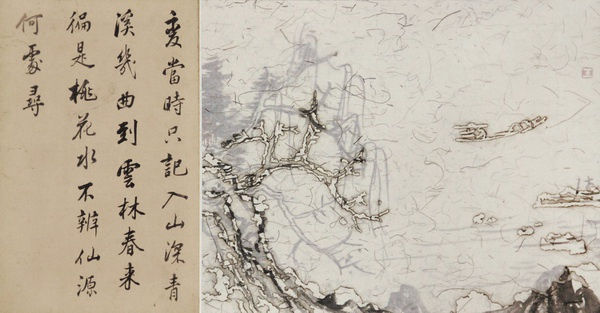 變當時只記入山深青
溪幾曲到雲林春来
徧是桃花水不辨仙源
何處尋